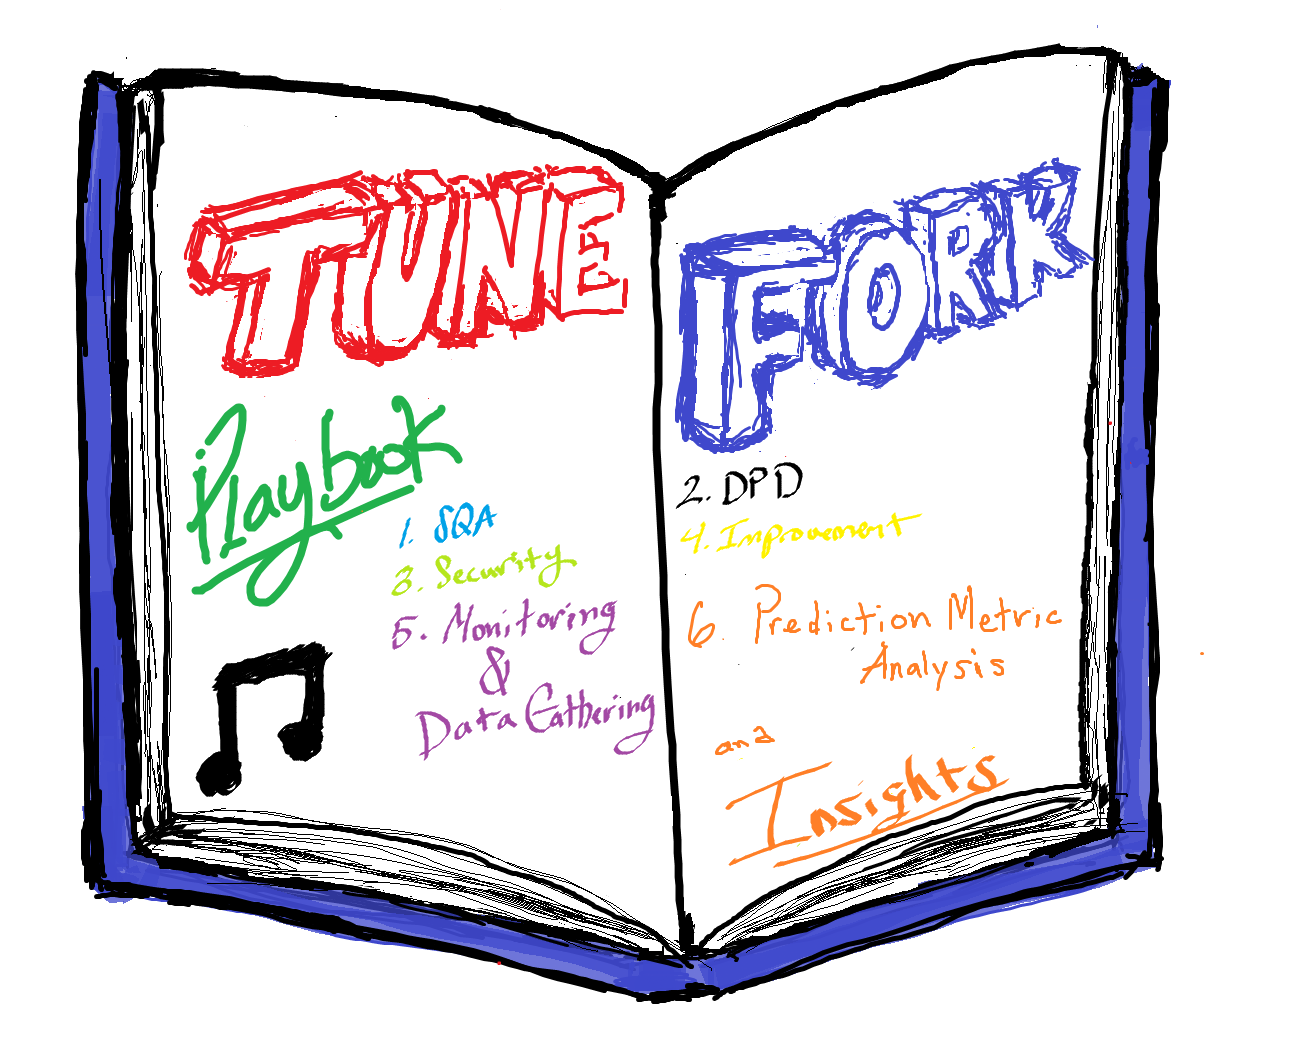 TUNE
Playbook
1. SQA
3. Security
5. Monitoring
&
Data Gathering
FORK
2. DPD
4. Improvement
6. Prediction Metric
Analysis
and
Insights